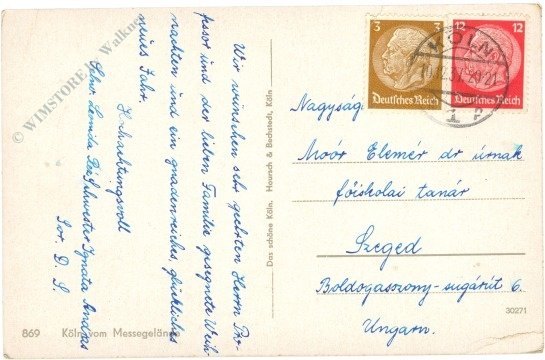 Wir wünschen sehr geehrten Herrn Pro-
fessor und der lieben Familie gesegnete Weih-
nachten und ein gnadenreiches, glückliches
neues Jahr.
Hochachtungsvoll
Schw. Ignatia
Sor. D. S.
869 Köln vom Messegelände
Das schöne Köln. Hoursch & Bechstedt, Köln
3 3
Deutsches Reich
12 12
Deutsches Reich
KÖLN
Nagyság
Moór Elemér dr úrnak
főiskolai tanár
Szeged
Boldogasszony-sugárút 6.
30271
Ungarn.
© WIMSTORE Walkner